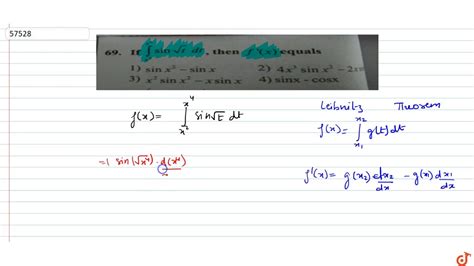 57528
69. If ∫ sin √t dt, then f'(x) equals
1) sin x² – sin x 2) 4x³ sin x² – 2x
3) x² sin x² – x sin x 4) sinx - cosx
f(x) = ∫_{x²}^{x⁴} sin√t dt
Leibnitz Theorem
f(x) = ∫_{x₁}^{x₂} g(t) dt
=1 sin(√x⁴) · d(x⁴)
f'(x) = g(x₂) dx₂/dx – g(x₁) dx₁/dx